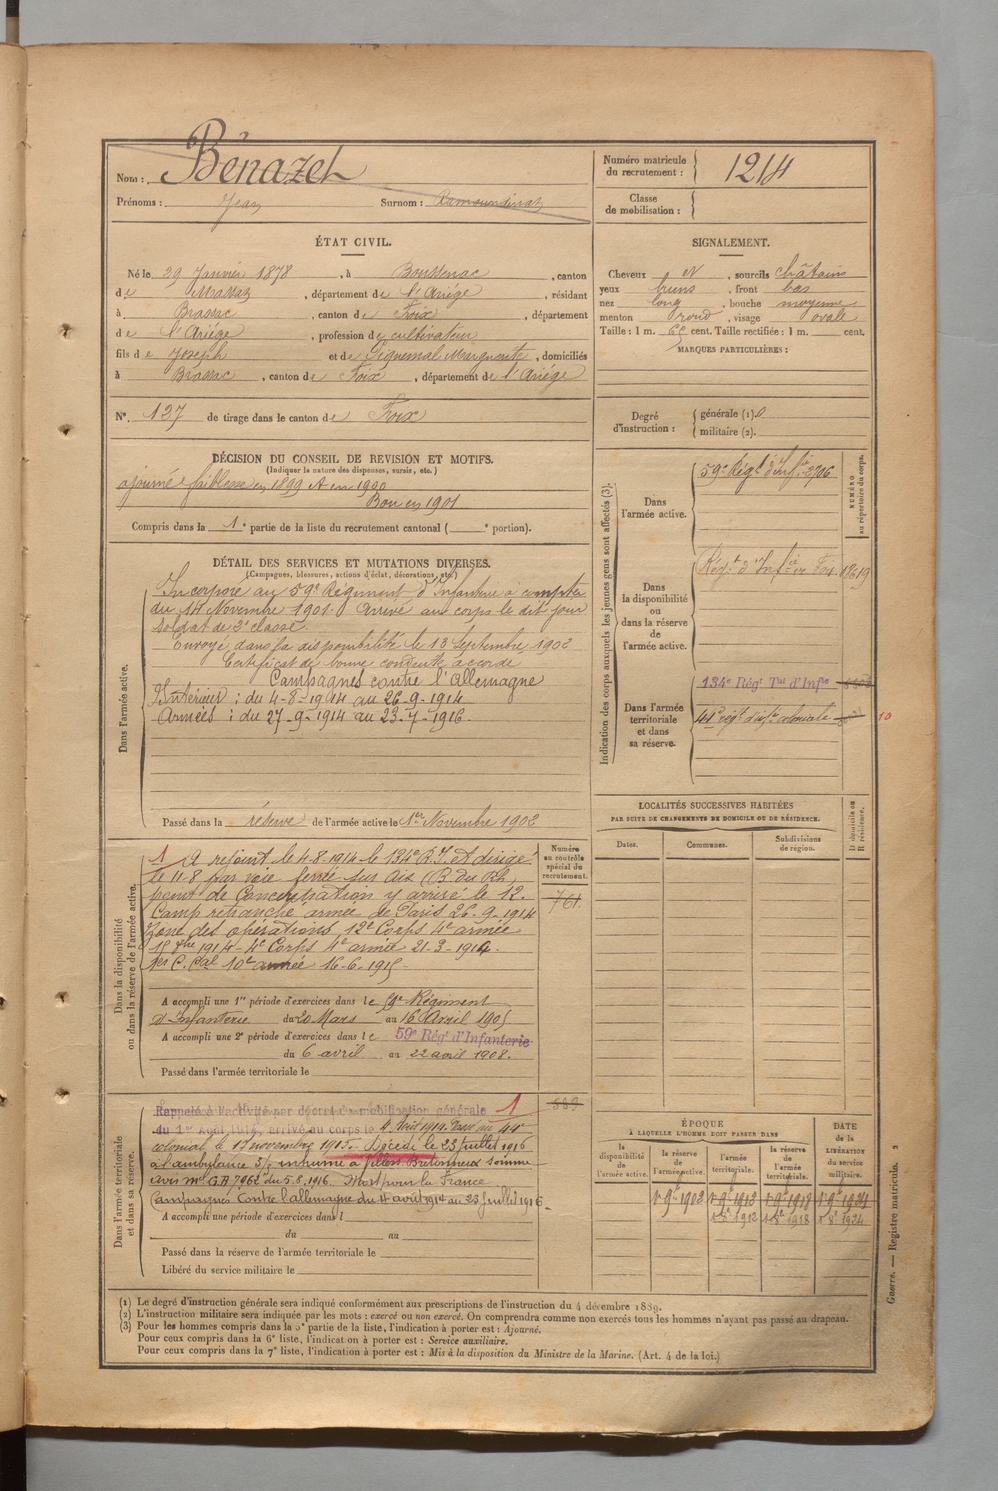 Nom : Bénazet
Prénoms : Jean Surnom : Ramoundinat
ÉTAT CIVIL.
Né le 29 Janvier 1878, à Boussenac, canton
de Massat, département de l'Ariége, résidant
à Brassac, canton de Foix, département
de l'Ariége, profession de cultivateur
fils de Joseph et de Marguerite, domiciliés
à Brassac, canton de Foix, département de l'Ariége
N° 127 de tirage dans le canton de Foix
DÉCISION DU CONSEIL DE REVISION ET MOTIFS.
(Indiquer la nature des dispenses, sursis, etc.)
ajourné faiblesse en 1899 et en 1900
Bon en 1901
Compris dans la 1e partie de la liste du recrutement cantonal ( e portion).
DÉTAIL DES SERVICES ET MUTATIONS DIVERSES.
(Campagnes, blessures, actions d'éclat, décorations, etc.)
Dans l'armée active.
Incorporé au 59e Régiment d'Infanterie à compter
du 14 Novembre 1901. Arrivé au corps le dit jour
soldat de 2e classe.
Envoyé dans la disponibilité le 13 Septembre 1902
Certificat de bonne conduite accordé
Campagnes contre l'Allemagne
Intérieur : du 4-8-1914 au 26-9-1914
Armées : du 27-9-1914 au 23-7-1916.
Passé dans la réserve de l'armée active le 1er Novembre 1902
Dans la disponibilité
ou dans la réserve de l'armée active.
1 A rejoint le 4-8-1914 le 134e R.I. et dirigé
le 11-8 par voie ferrée sur Aix (B. du Rh.)
point de Concentration y arrivé le 12.
Camp retranché armée de Paris 26-9-1914
Zone des opérations, 12e Corps 4e armée
1914 - 4e Corps 4e armée 21-3-1914.
1er C. Cal 10e armée 16-6-1915-
Numéro
au contrôle
spécial du
recrutement.
761
A accompli une 1re période d'exercices dans le 59e Régiment
d'Infanterie du 20 Mars au 16 Avril 1905
A accompli une 2e période d'exercices dans le 59e Régt d'Infanterie
du 6 avril au 22 avril 1908.
Passé dans l'armée territoriale le
Dans l'armée territoriale
et dans sa réserve.
Rappelé à l'activité par décret de mobilisation générale 1
du 1er Août 1914, arrivé au corps le 4 Août 1914. Passé au 44e
colonial le 17 novembre 1915. Décédé le 23 juillet 1916
à l'ambulance 3/5 inhumé à Villers Bretonneux Somme
avis mel G.A 7962 du 5.8.1916. Mort pour la France.
Campagnes Contre l'allemagne du 4 août 1914 au 23 Juillet 1916
A accompli une période d'exercices dans l
du au
Passé dans la réserve de l'armée territoriale le
Libéré du service militaire le
Numéro matricule
du recrutement : 1214
Classe
de mobilisation :
SIGNALEMENT.
Cheveux et, sourcils châtains
yeux bruns, front bas
nez long, bouche moyenne
menton rond, visage ovale
Taille : 1 m. cent. Taille rectifiée : 1 m. cent.
MARQUES PARTICULIÈRES :
Degré
d'instruction :
générale (1) 0
militaire (2).
Indication des corps auxquels les jeunes gens sont affectés (3).
NUMÉRO
au répertoire du corps.
Dans
l'armée active.
59e Régt d'Infie 2706
Dans
la disponibilité
ou
dans la réserve
de
l'armée active.
Régt d'Infie de Foix
Dans l'armée
territoriale
et dans
sa réserve.
134e Régt Tal d'Infie
44e régt d'infie coloniale
10
LOCALITÉS SUCCESSIVES HABITÉES
PAR SUITE DE CHANGEMENTS DE DOMICILE OU DE RÉSIDENCE.
Dates.
Communes.
Subdivisions
de région.
D domicile ou
R résidence.
ÉPOQUE
À LAQUELLE L'HOMME DOIT PASSER DANS
DATE
de la
LIBÉRATION
du service
militaire.
la
disponibilité
de l'armée active.
la réserve
de
l'armée active.
l'armée
territoriale.
la réserve
de
l'armée
territoriale.
1 9e 1902 1 9e 1912 1 9e 1918 1 9e 1924
1 8e 1912 1 8e 1918 1 8e 1924
(1) Le degré d'instruction générale sera indiqué conformément aux prescriptions de l'instruction du 4 décembre 1889.
(2) L'instruction militaire sera indiquée par les mots : exercé ou non exercé. On comprendra comme non exercés tous les hommes n'ayant pas passé au drapeau.
(3) Pour les hommes compris dans la 5e partie de la liste, l'indication à porter est : Ajourné.
Pour ceux compris dans la 6e liste, l'indication à porter est : Service auxiliaire.
Pour ceux compris dans la 7e liste, l'indication à porter est : Mis à la disposition du Ministre de la Marine. (Art. 4 de la loi.)
Guerre. — Registre matricule. 2